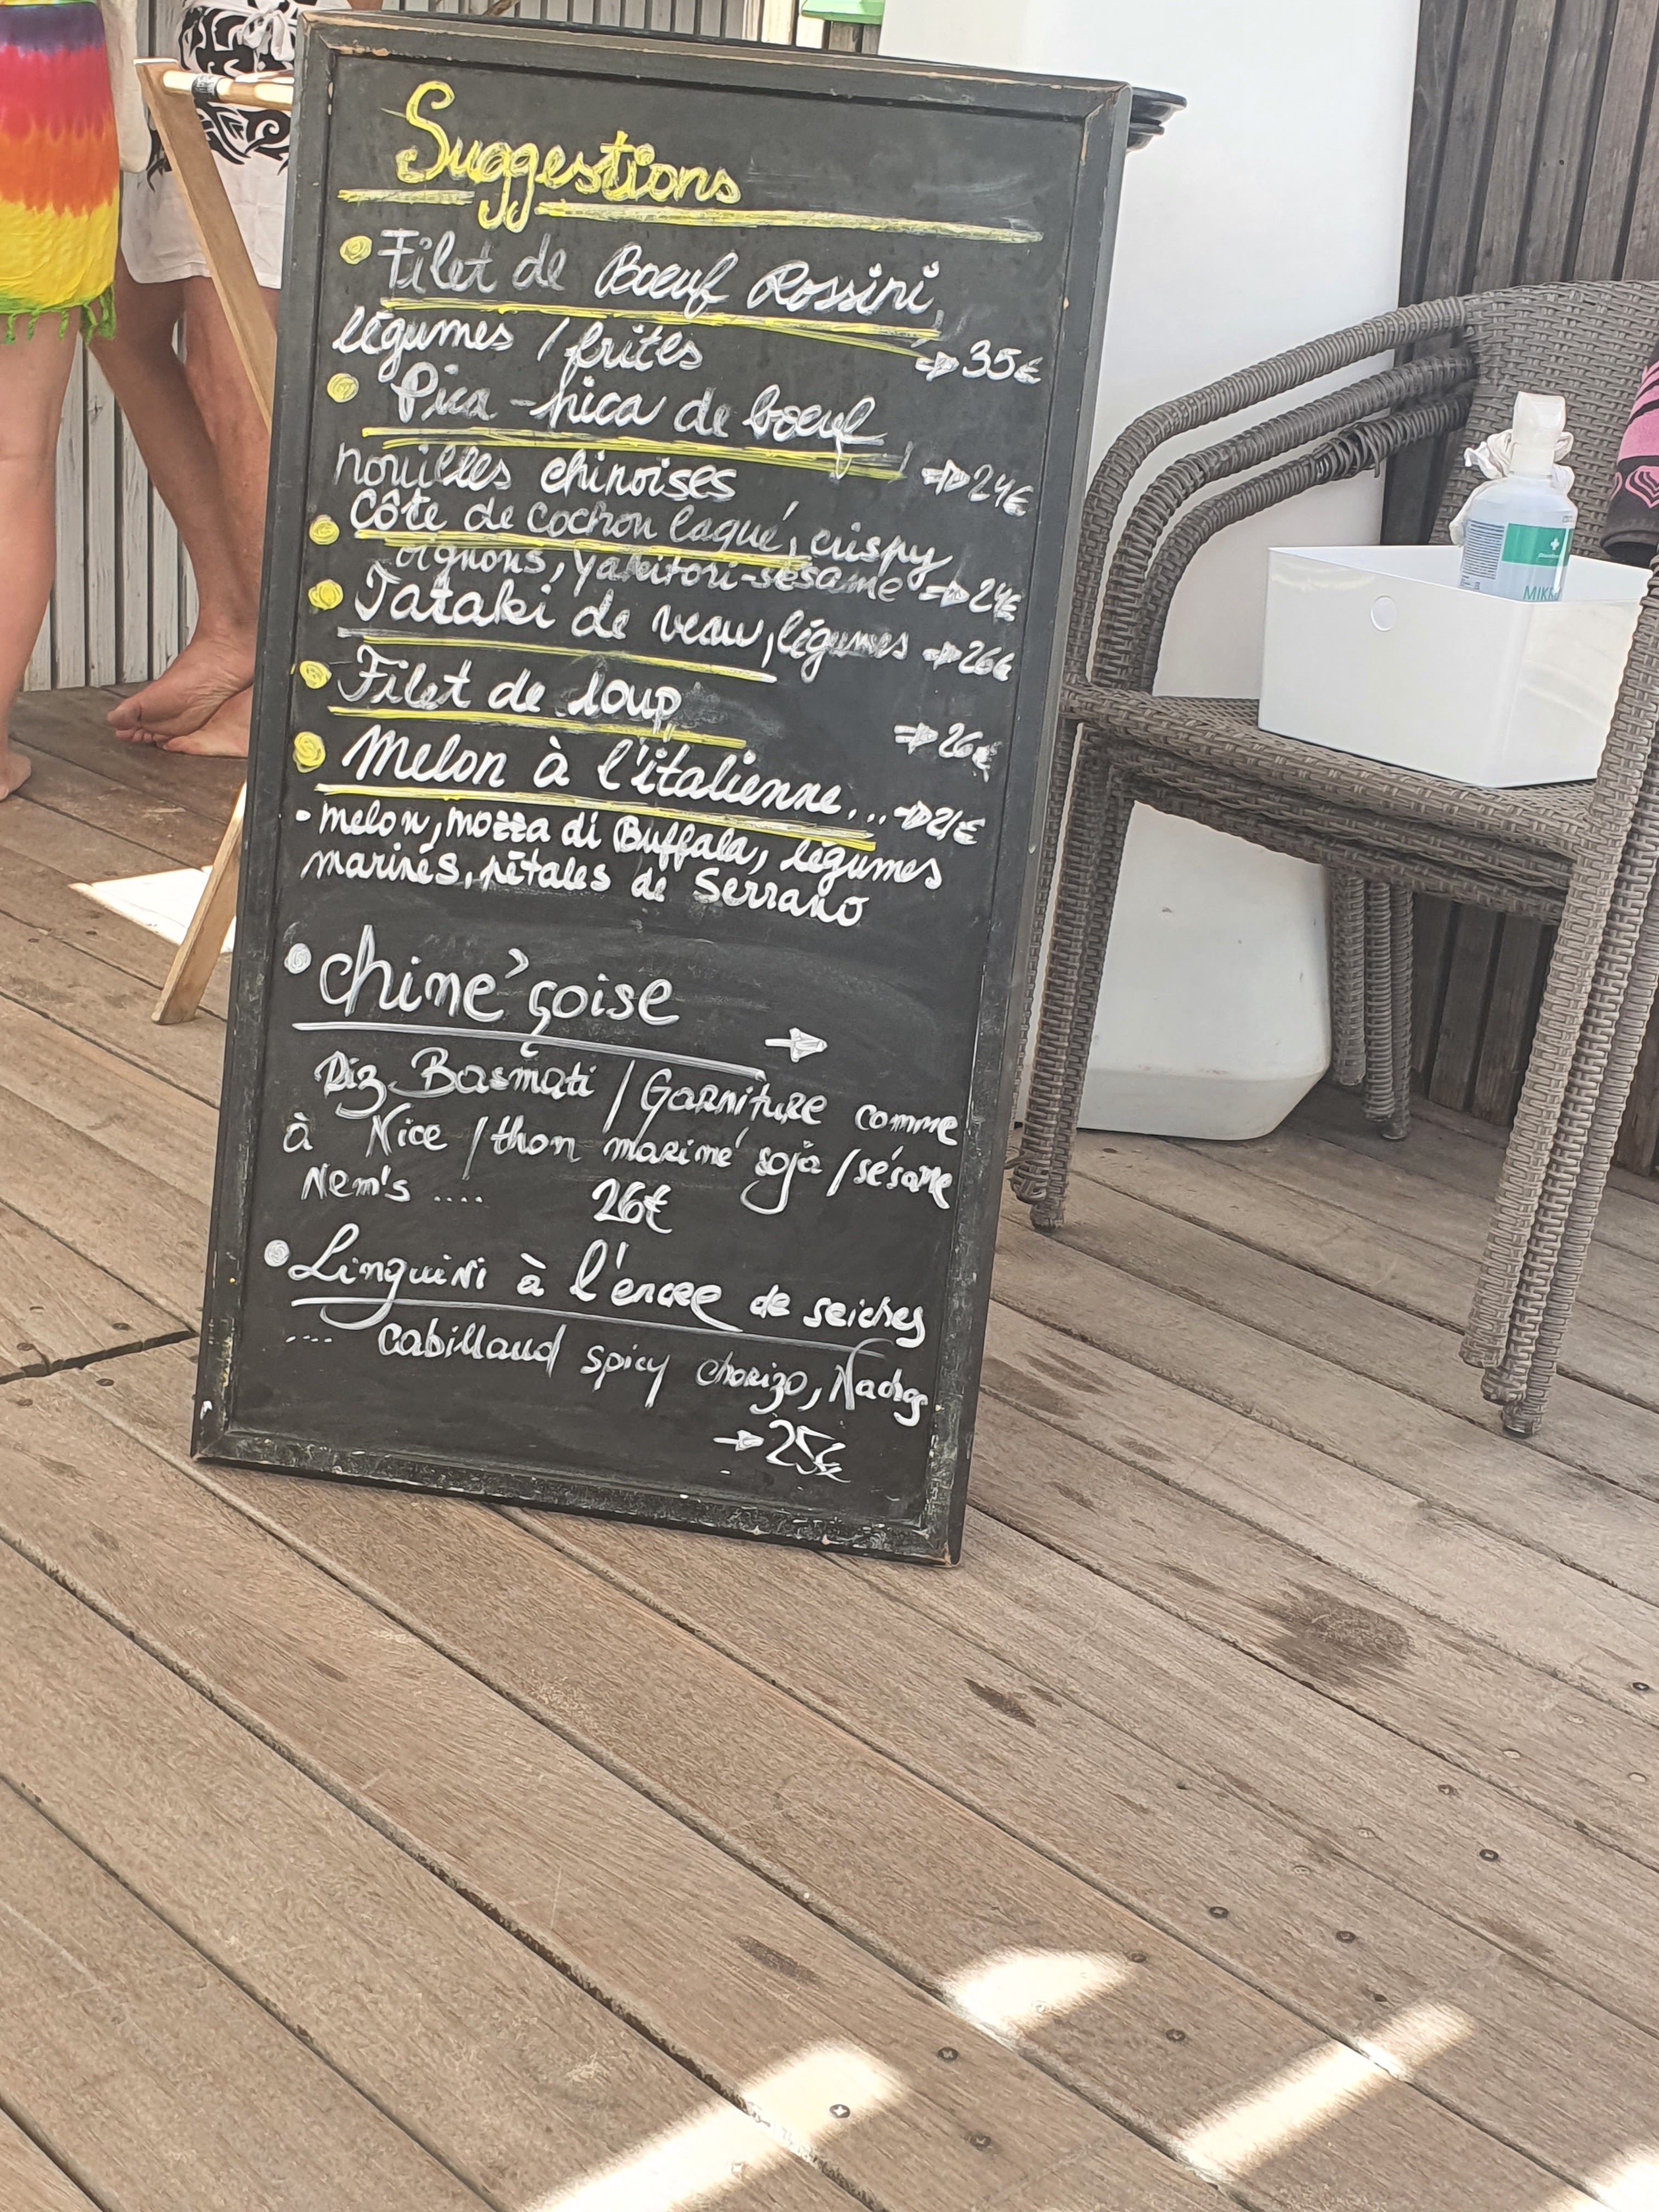 Suggestions
Filet de Boeuf Rossini,
légumes / frites => 35€
Pica-pica de boeuf,
nouilles chinoises => 24€
Côte de cochon laqué, crispy
oignons, yakitori-sésame => 24€
Tataki de veau, légumes => 26€
Filet de loup => 26€
Melon à l'italienne... => 21€
- melon, mozza di Buffala, légumes
marinés, pétales de Serrano
Chine'çoise →
Riz Basmati / Garniture comme
à Nice / thon mariné soja / sésame
Nem's .... 26€
Linguini à l'encre de seiches
.... cabillaud spicy chorizo, Nachos
→ 25€